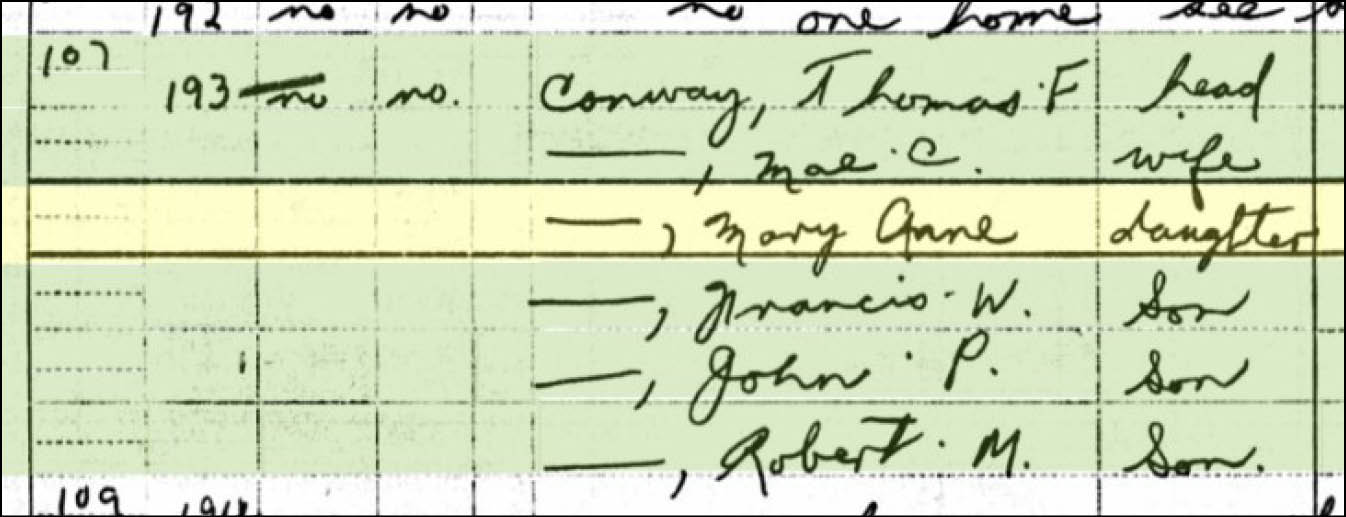 192 no no no one home see
107
193 no no. Conway, Thomas F head
——, Mae C. wife
——, Mary Anne daughter
——, Francis W. Son
——, John P. Son
——, Robert M. Son.
109